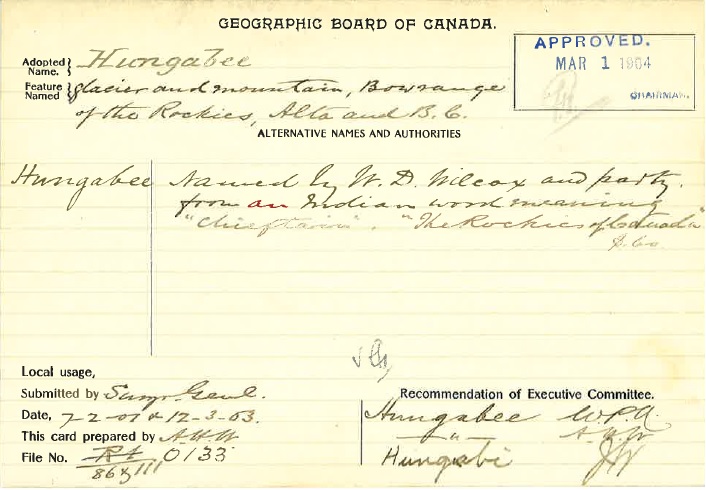 GEOGRAPHIC BOARD OF CANADA.
APPROVED.
MAR 1 1904
CHAIRMAN.
Adopted Name. } Hungabee
Feature Named } glacier and mountain, Bow range
of the Rockies, Alta and B.C.
ALTERNATIVE NAMES AND AUTHORITIES
Hungabee Named by W. D. Wilcox and party.
from an Indian word meaning
"Chieftain". "The Rockies of Canada"
Local usage,
Submitted by Surv. Genl.
Date, 7-2-01 & 12-3-03.
This card prepared by
File No. 0133
Recommendation of Executive Committee.
Hungabee
"
Hungabi